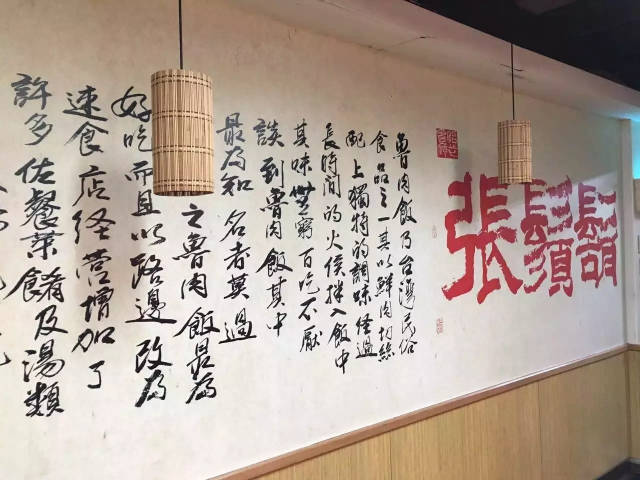 鬍鬚張
魯肉飯乃台灣民俗
食品之一其以鮮肉切絲
配上獨特的調味経過
長時間的火侯拌入飯中
其味無窮百吃不厭
談到魯肉飯其中
最為知名者莫過
之魯肉飯最為
好吃而且以路邊改為
速食店経营增加了
許多佐餐菜餚及湯類